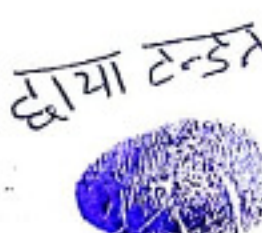 छाया टन्डन